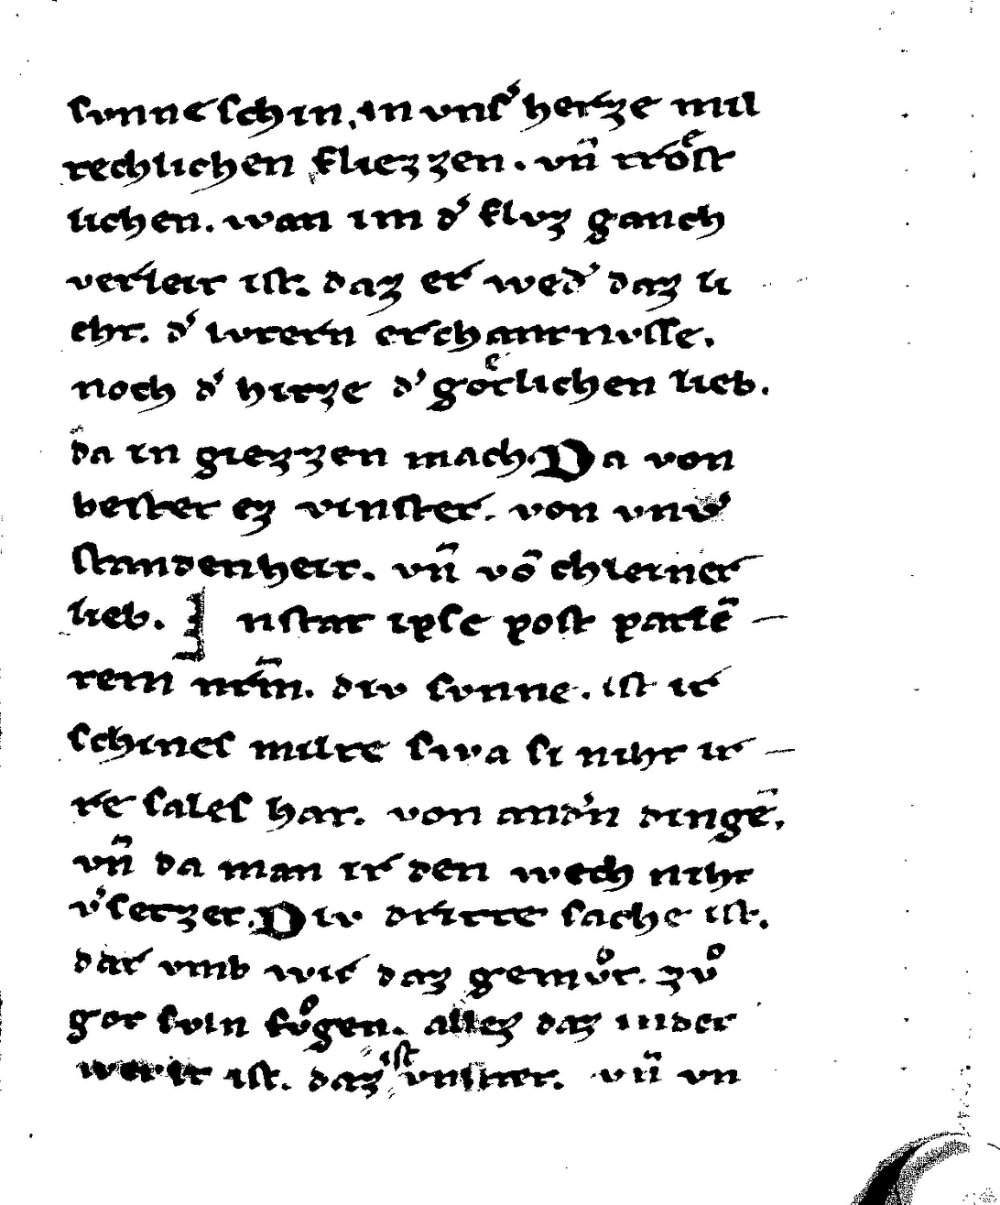 sunne schin. in unsˀ herze mil
techlichen fliezzen. vn̄ troͤst
lichen. wan im dˀ fluz gauch
verseit ist. daz er wedˀ daz li
eht. dˀ lutern erchantnusse.
noch dˀ hitze dˀ goͤtlichen lieb.
da in giezzen mach. Da von
bestet ez vinster. von unvˀ
standenheit. vn̄ vō chleiner
lieb. Instat ipse post parietē
tem nr̄m. div sunne. ist ir
schines milte swa si niht ir
re sales hat. von andˀn dingē.
vn̄ da man ir den wech niht
vˀsetzet. Div dritte sache ist.
dar umb wir daz gemuͦt. zuͦ
got suln fuͦgen. allez daz inder
werlt ist. daz ist vinster. vn̄ un